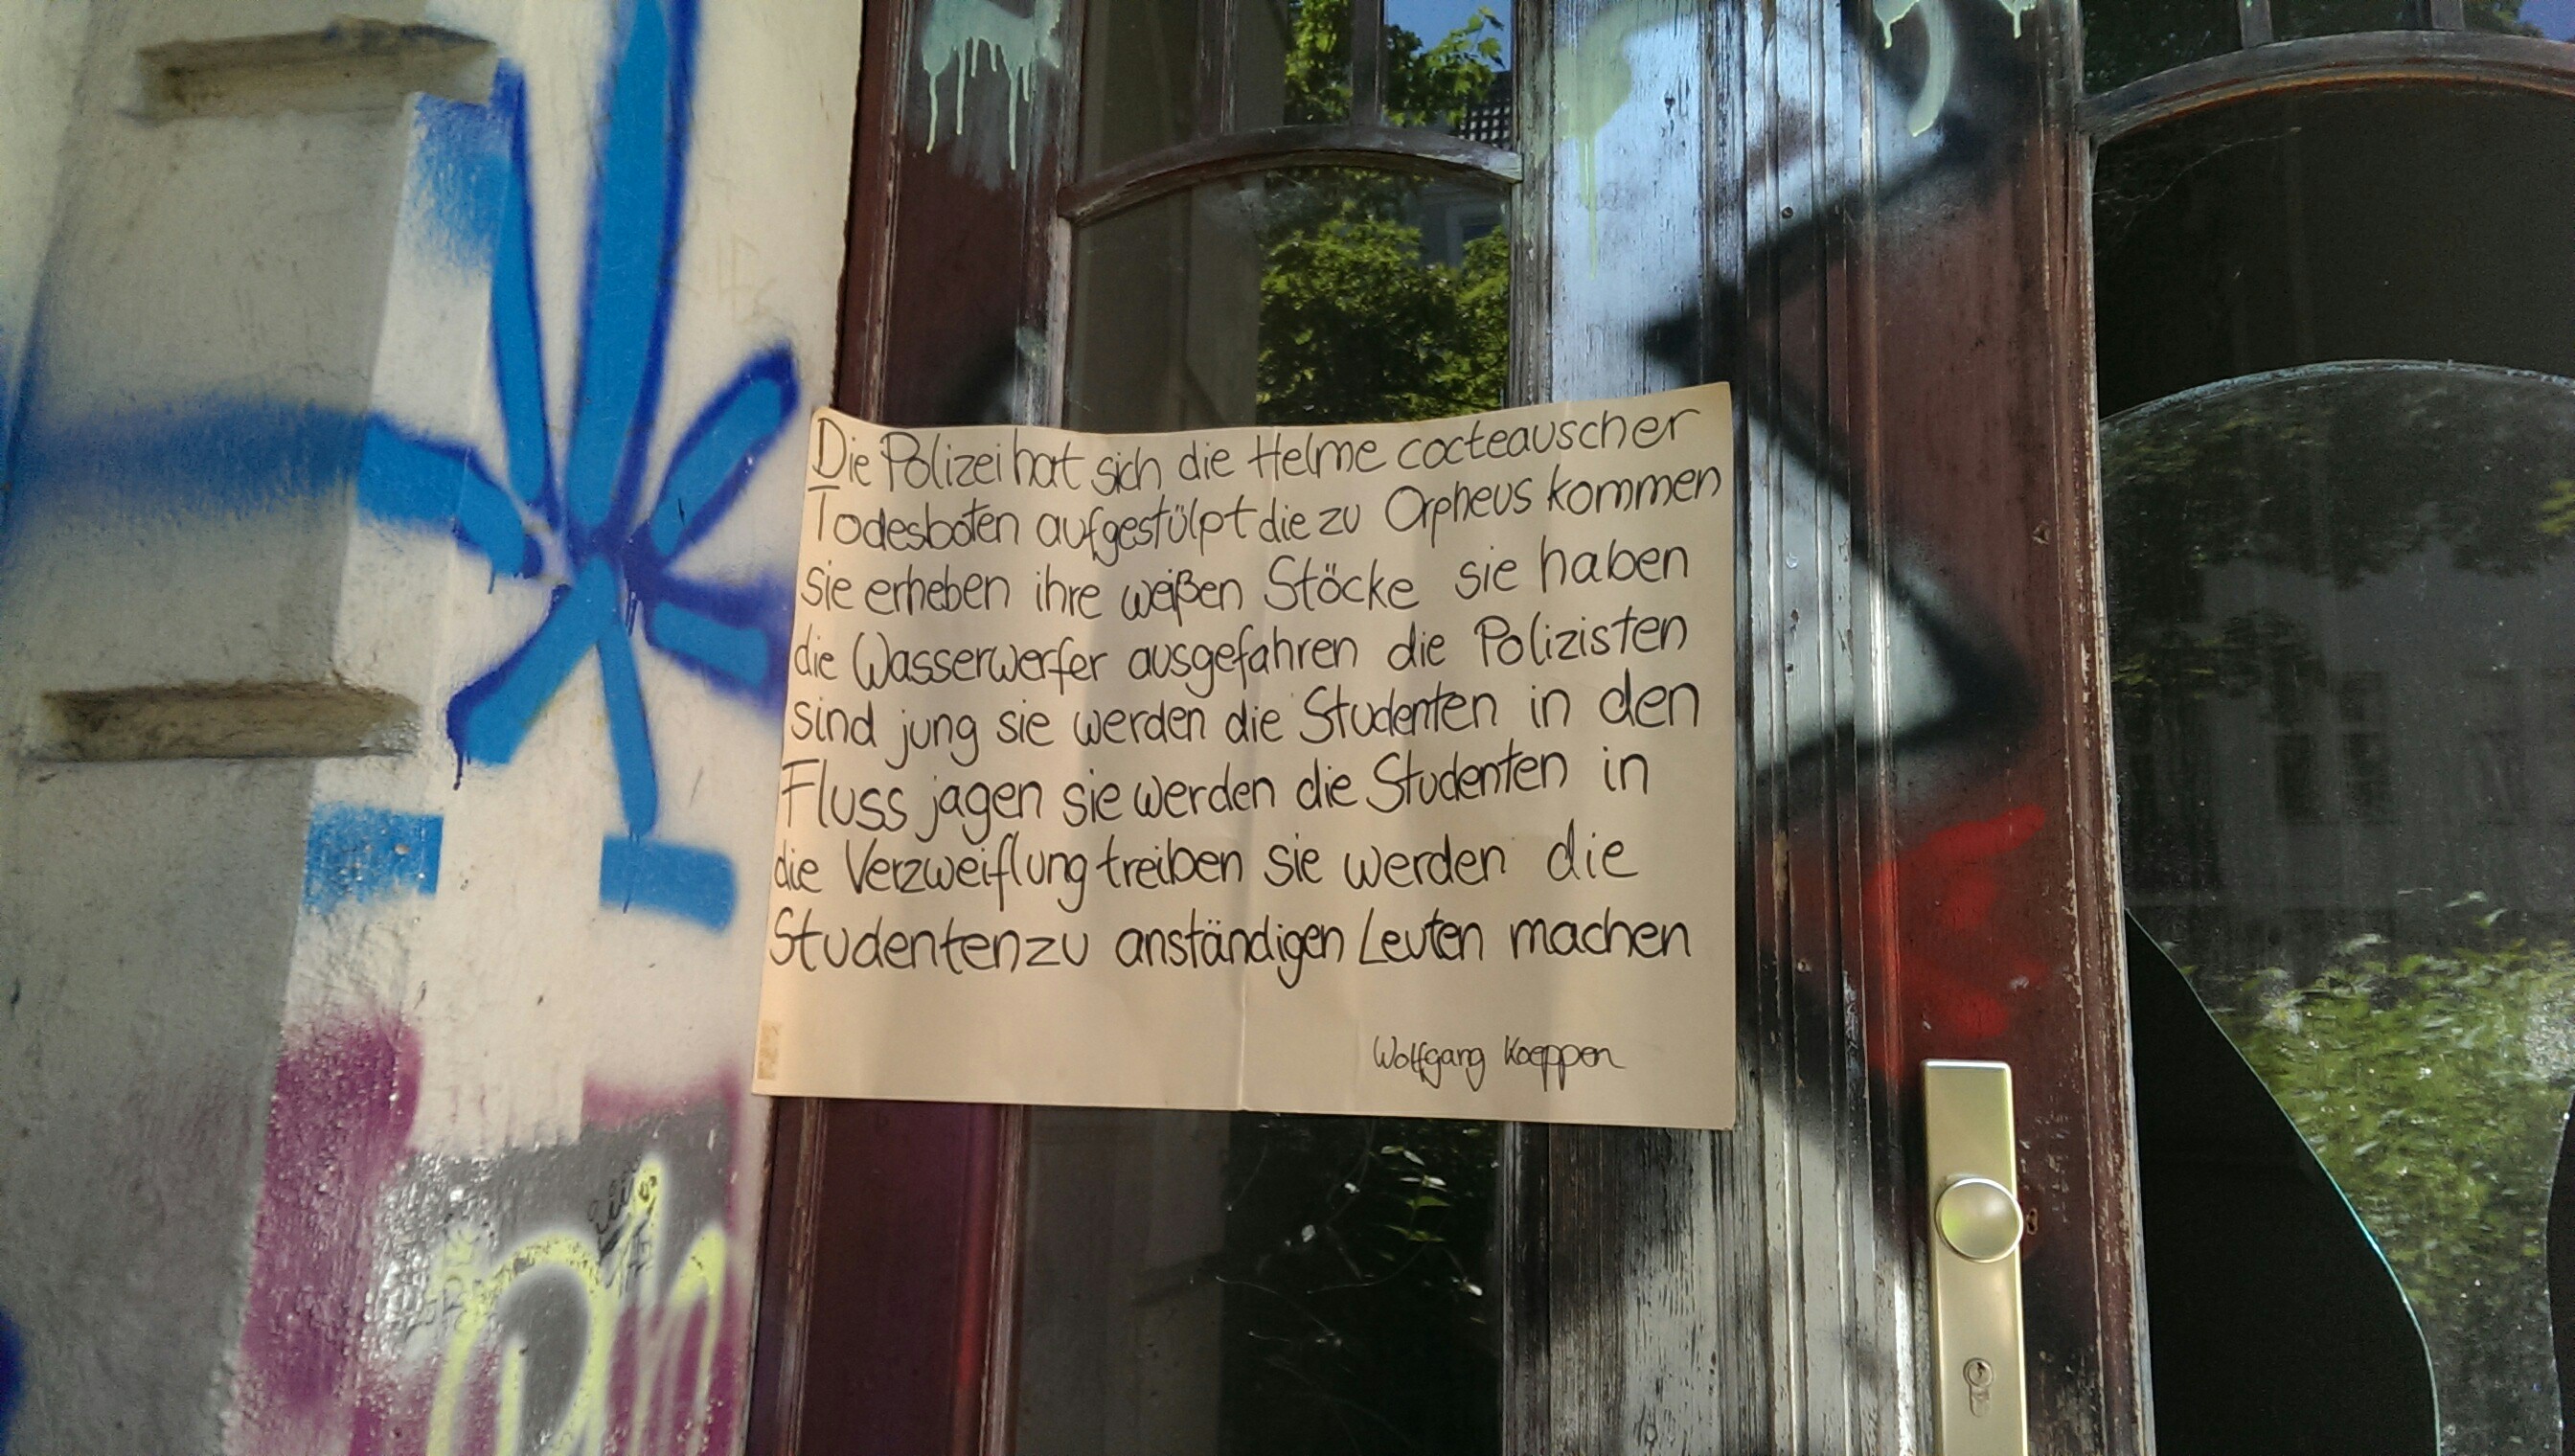 Die Polizei hat sich die Helme cocteauscher
Todesboten aufgestülpt die zu Orpheus kommen
sie erheben ihre weißen Stöcke sie haben
die Wasserwerfer ausgefahren die Polizisten
sind jung sie werden die Studenten in den
Fluss jagen sie werden die Studenten in
die Verzweiflung treiben sie werden die
Studenten zu anständigen Leuten machen
Wolfgang Koeppen